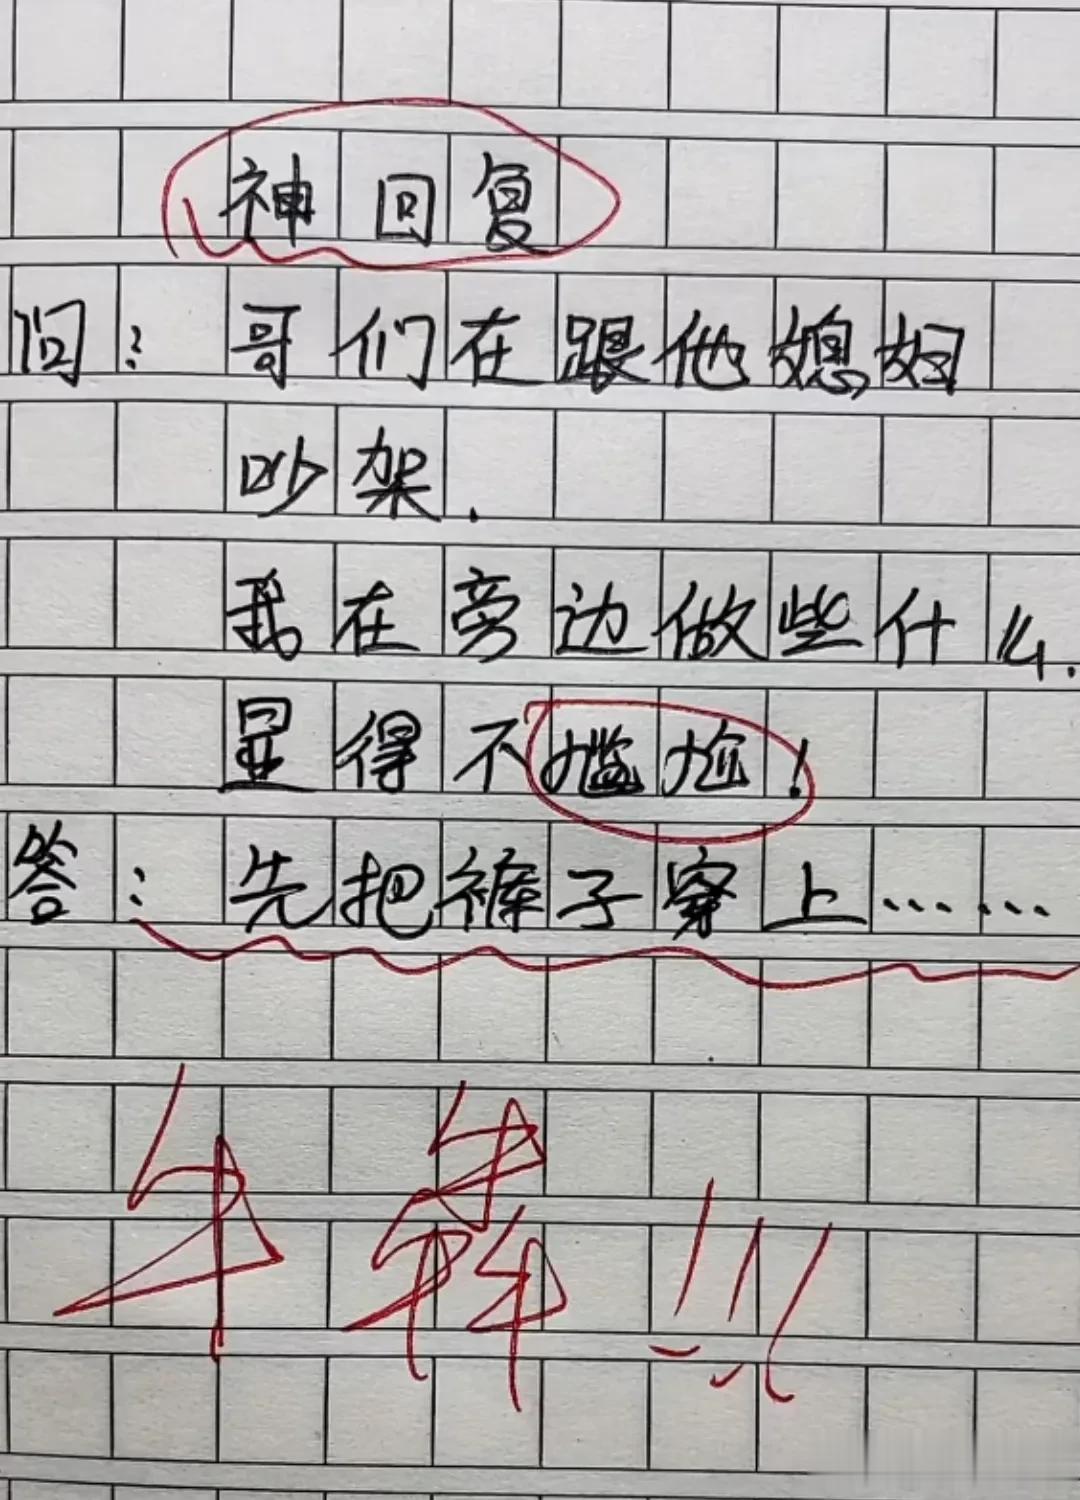 神回复
问：哥们在跟他媳妇
吵架.
我在旁边做些什么.
显得不尴尬！
答：先把裤子穿上……
牛犇!!!